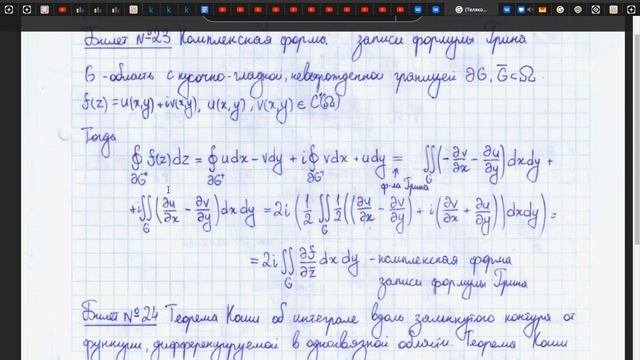 Билет №23 Комплексная форма записи формулы Грина
G - область с кусочно-гладкой, невырожденной границей ∂G, G̅⊂Ω.
f(z) = u(x,y) + iv(x,y), u(x,y), v(x,y) ∈ C¹(Ω)
Тогда
∮_{∂G⁺} f(z)dz = ∮_{∂G⁺} udx - vdy + i∮_{∂G⁺} vdx + udy = (ф-ла Грина) ∬_G (-∂v/∂x - ∂u/∂y) dxdy +
+ i∬_G (∂u/∂x - ∂v/∂y) dxdy = 2i (1/2 ∬_G 1/2 ((∂u/∂x - ∂v/∂y) + i(∂v/∂x + ∂u/∂y)) dxdy) =
= 2i ∬_G ∂f/∂z̅ dxdy - комплексная форма
записи формулы Грина
Билет №24 Теорема Коши об интеграле вдоль замкнутого контура от
функции, дифференцируемой в односвязной области. Теорема Коши